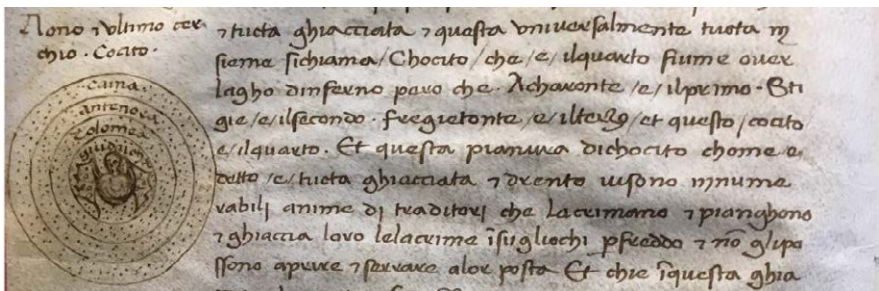 Nono ⁊ vltimo cer
chio · Cocito ·
caina
antenora
tolomea
giudecha
⁊ tucta ghiacciata ⁊ questa vniversalmente tuota in
sieme sichiama / Chocito / che / e / ilquarto fiume over
lagho dinferno pero che · Acharonte / e / ilprimo · Sti
gie / e / ilsecondo · fregietonte / e / ilterzo / et questo / cocito
e / ilquarto · Et questa pianura dichocito chome e
detto / e / tucta ghiacciata ⁊ drento uisono innume
rabilj anime dj traditorj che lacrimano ⁊ pianghono
⁊ ghiaccia loro lelacrime īsugliochi pfreddo ⁊ nō glipo
ssono aprire ⁊ serrare alor posta Et chie īquesta ghia